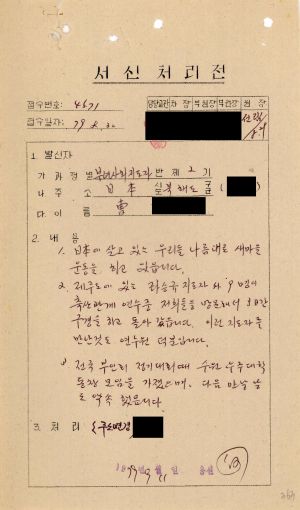 서신처리전
접수번호: 4471
접수일자: 79. 8. 30
담당 과장 부원장 원장
1. 발신자
가 과정별 부녀사회지도자 반 제 2 기
나 주 소 日本 시도 북해도
다 이 름 曺
2. 내 용
1. 日本에 살고 있는 우리들 나름대로 새마을
운동을 하고 있습니다.
2. 제주도에 있는 지도자 외 9명이
축산관계 연수중 저희들을 방문해서 3日간
구경을 하고 돌아 갔읍니다. 이런 지도자를
만난것도 연수원 덕분입니다.
전국 부인회 정기대회때 수원 우주대학
동창 모임을 가졌으며, 다음 만날 날
도 약속 했읍니다.
3. 처 리 (주소변경)